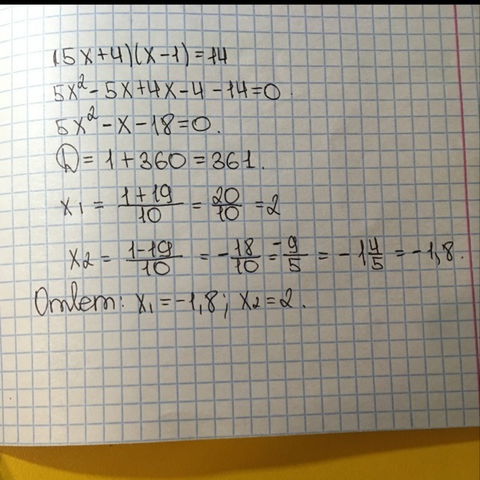 (5x+4)(x-1)=14
5x²-5x+4x-4-14=0.
5x²-x-18=0.
D=1+360=361.
x₁ = 1+19/10 = 20/10 = 2
x₂ = 1-19/10 = -18/10 = -9/5 = -1 4/5 = -1,8.
Ответ: x₁=-1,8; x₂=2.